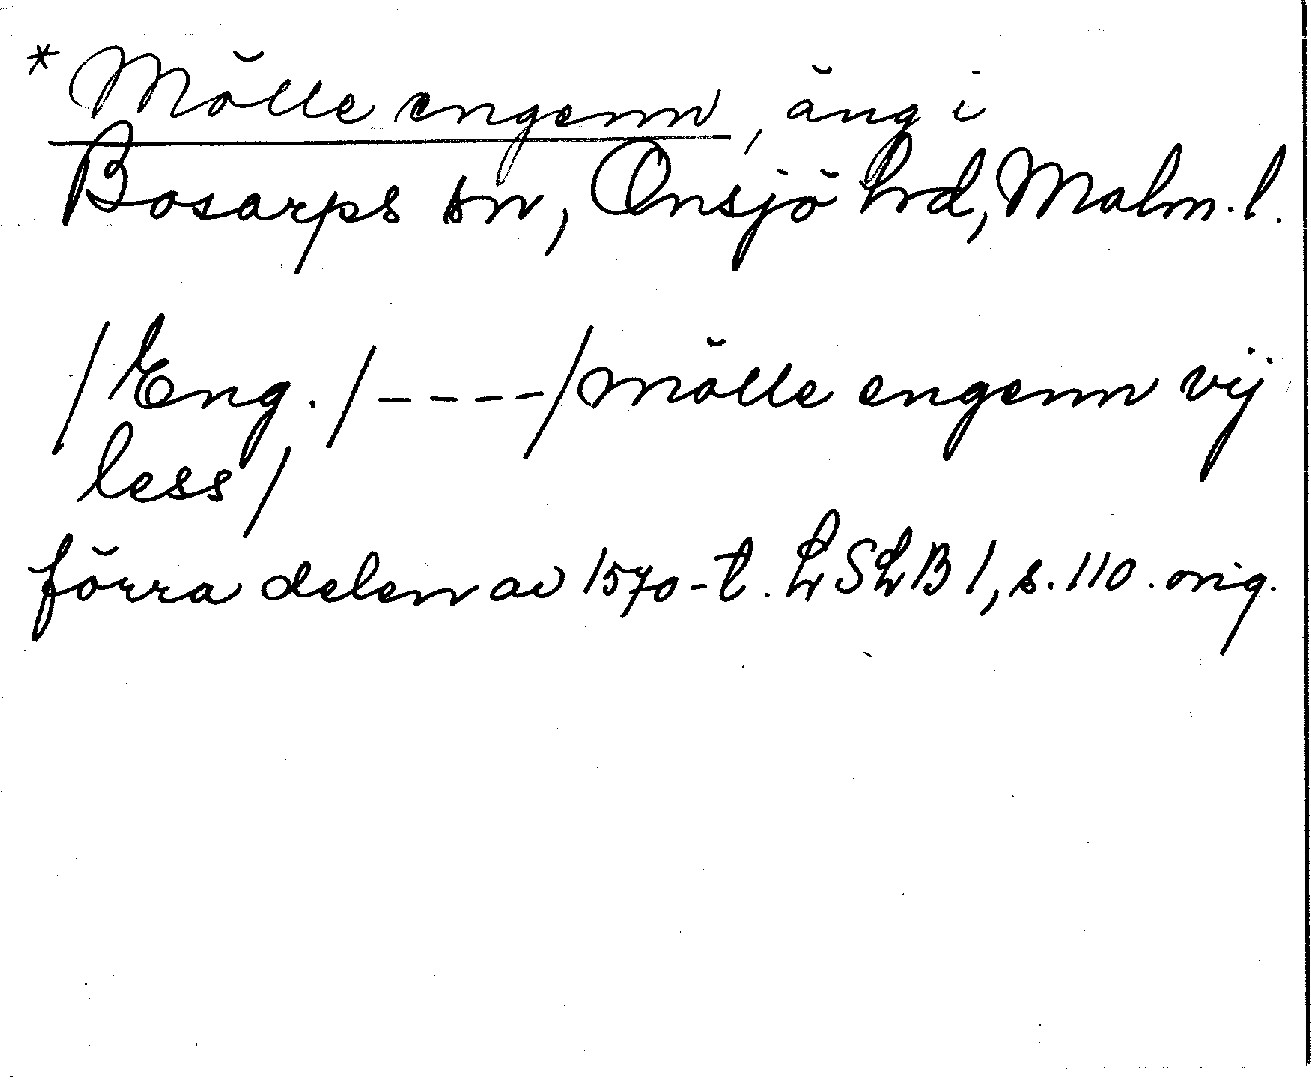 * Mölle engenn, äng i
Bosarps sn, Onsjö hrd, Malm. l.
/Eng./----/mölle engenn vij
less/
förra delen av 1570-t. LSLB 1, s. 110. orig.